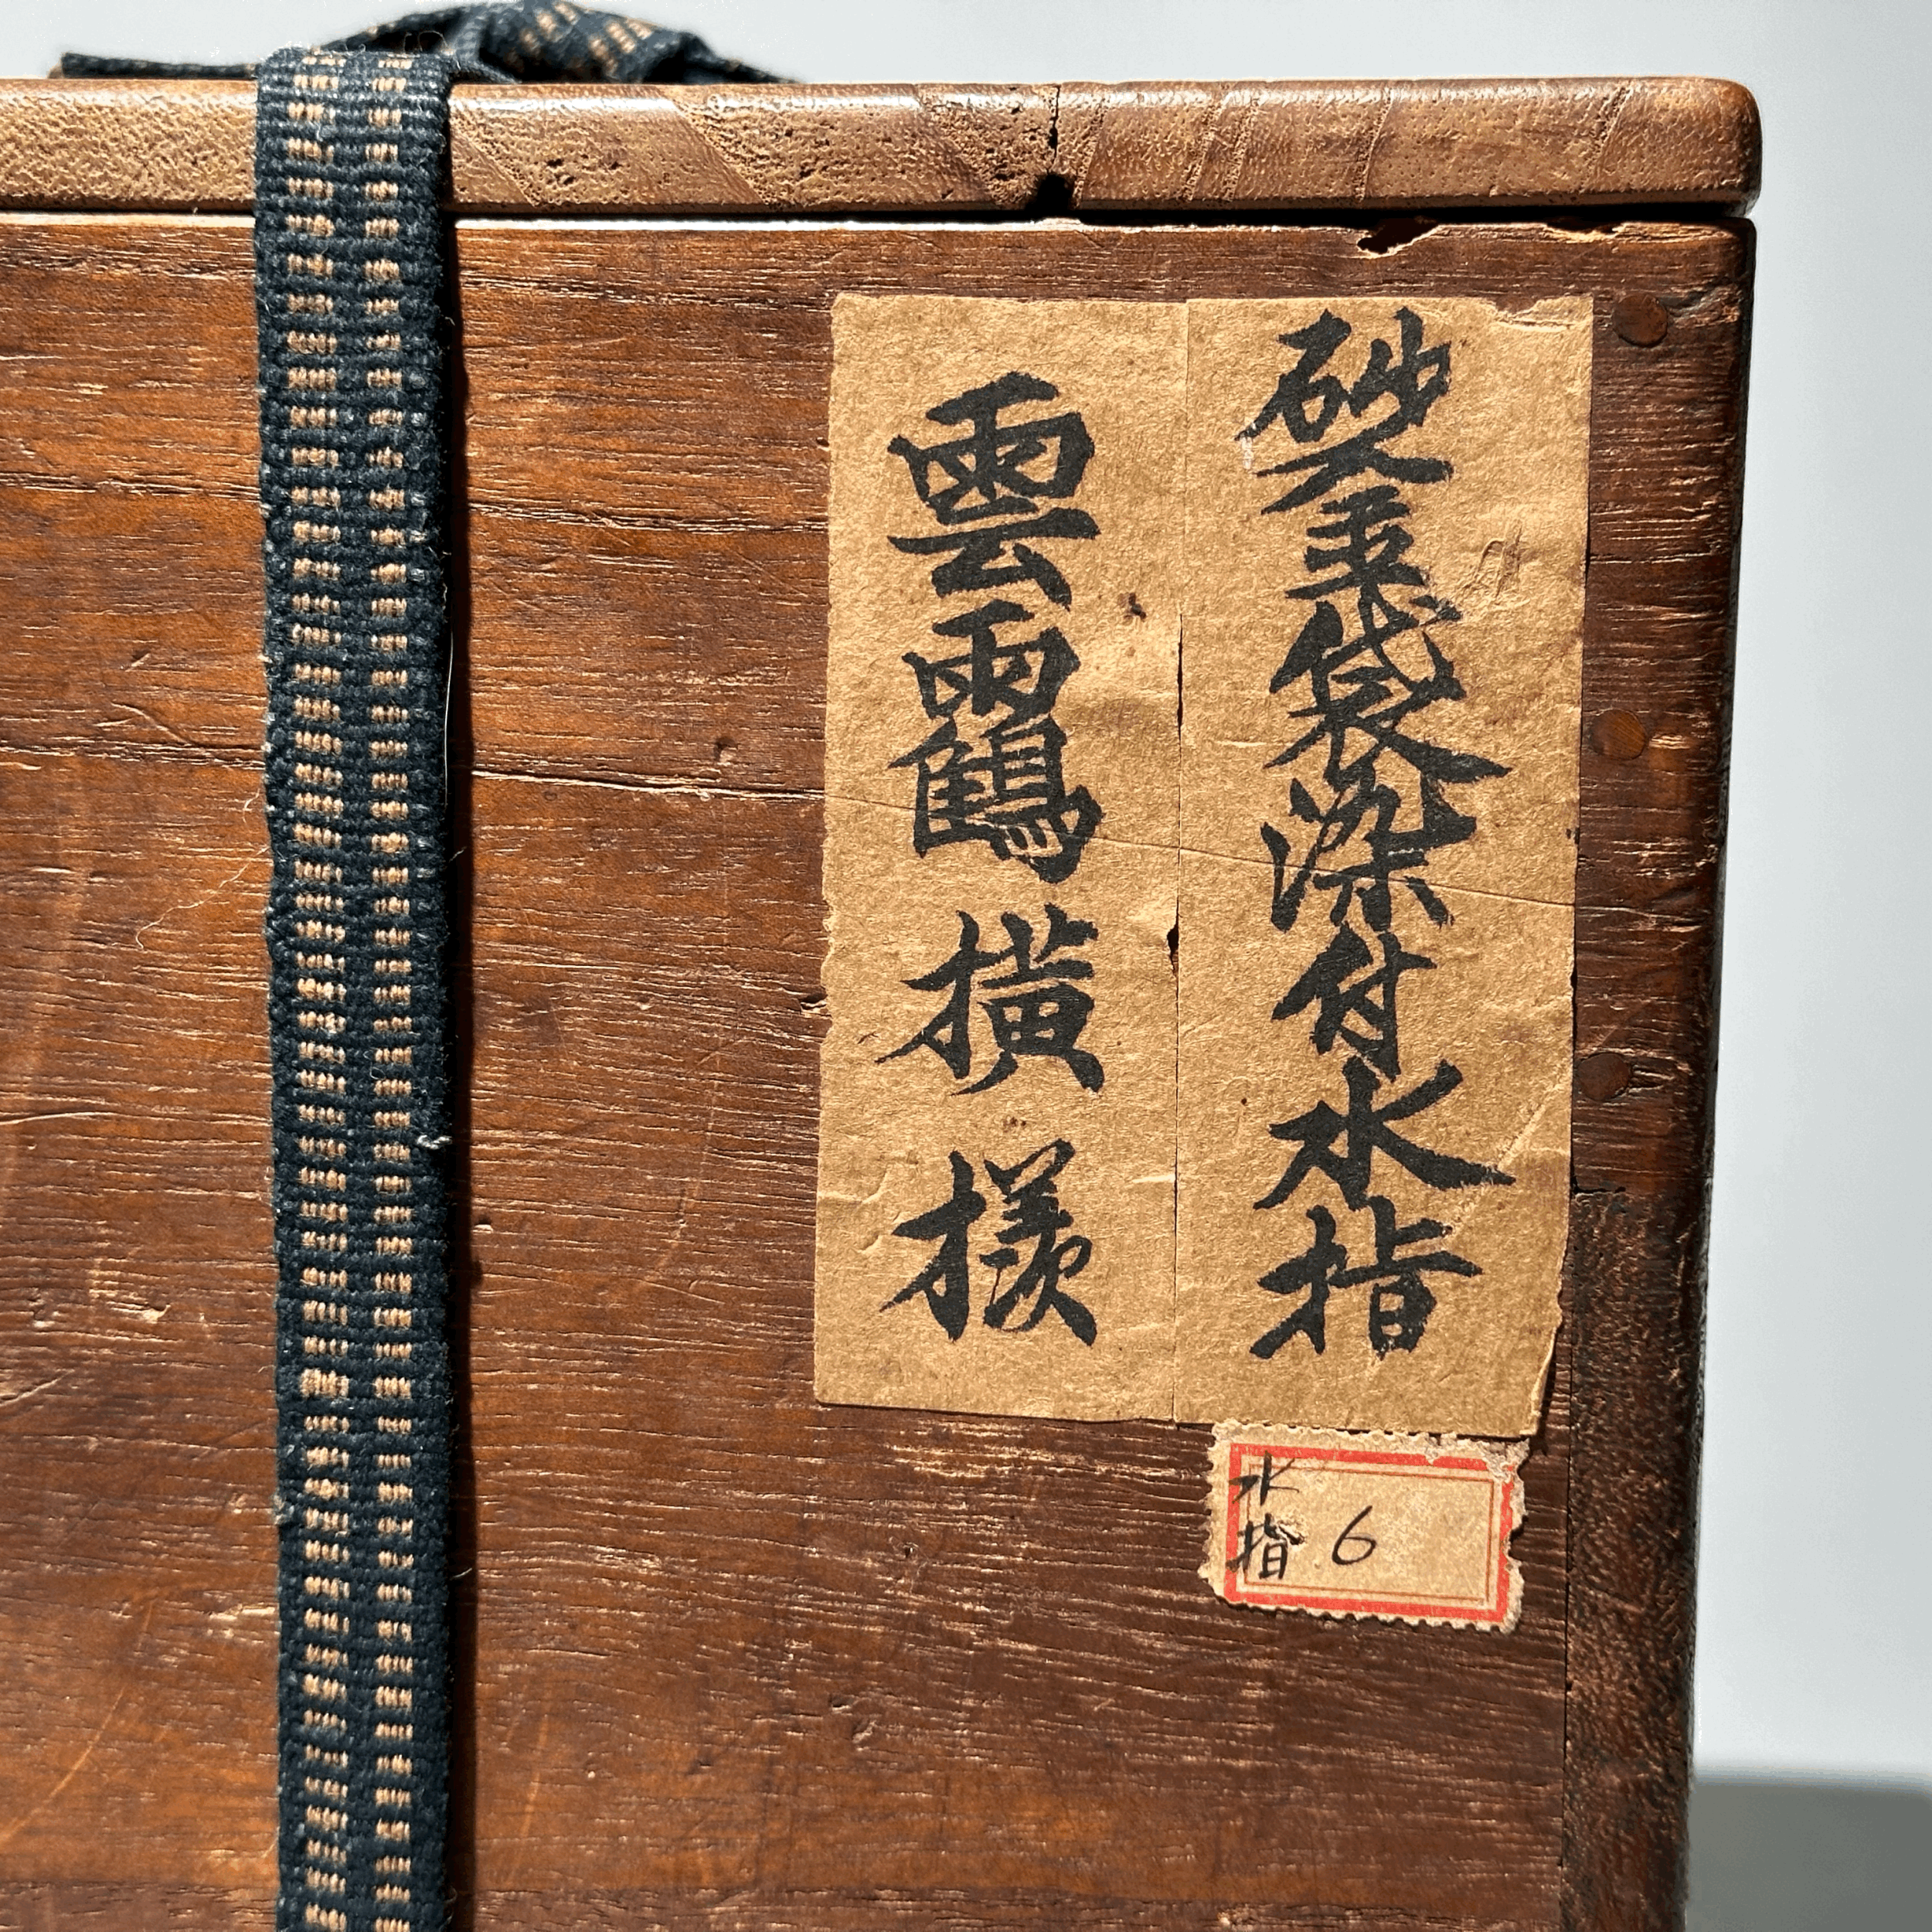 砂金袋染付水指
雲靎横様
水指 6